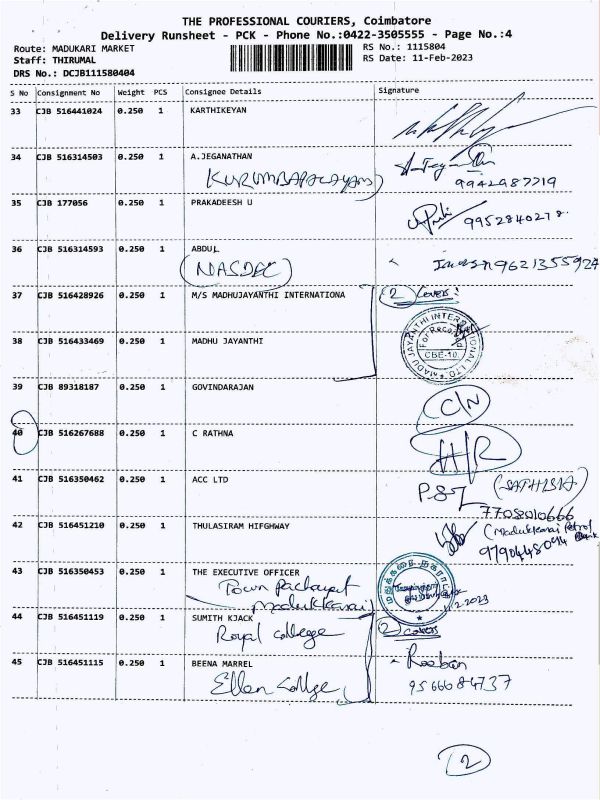 THE PROFESSIONAL COURIERS, Coimbatore
Delivery Runsheet - PCK - Phone No.:0422-3505555 - Page No.:4
Route: MADUKARI MARKET
RS No.: 1115804
Staff: THIRUMAL
RS Date: 11-Feb-2023
DRS No.: DCJB111580404
S No Consignment No Weight PCS Consignee Details Signature
33 CJB 516441024 0.250 1 KARTHIKEYAN
34 CJB 516314503 0.250 1 A.JEGANATHAN
KURUMBAPALAYAM
9942987719
35 CJB 177056 0.250 1 PRAKADEESH U
9952840278.
36 CJB 516314593 0.250 1 ABDUL
NASDEC
9621355924
37 CJB 516428926 0.250 1 M/S MADHUJAYANTHI INTERNATIONA
2 Covers:
MADHU JAYANTHI INTERNATIONAL LTD.
For Received
CBE-10.
38 CJB 516433469 0.250 1 MADHU JAYANTHI
39 CJB 89318187 0.250 1 GOVINDARAJAN
C/N
40 CJB 516267688 0.250 1 C RATHNA
H/R
41 CJB 516350462 0.250 1 ACC LTD
(SATHISH)
7708010666
42 CJB 516451210 0.250 1 THULASIRAM HIFGHWAY
(Madukkarai Petrol Bank
9790448094
43 CJB 516350453 0.250 1 THE EXECUTIVE OFFICER
Town Pachayat
Madukkarai
2.2023
44 CJB 516451119 0.250 1 SUMITH KJACK
Royal College
2 covers
45 CJB 516451115 0.250 1 BEENA MARREL
Ellen College
Roeban
9566684737
2